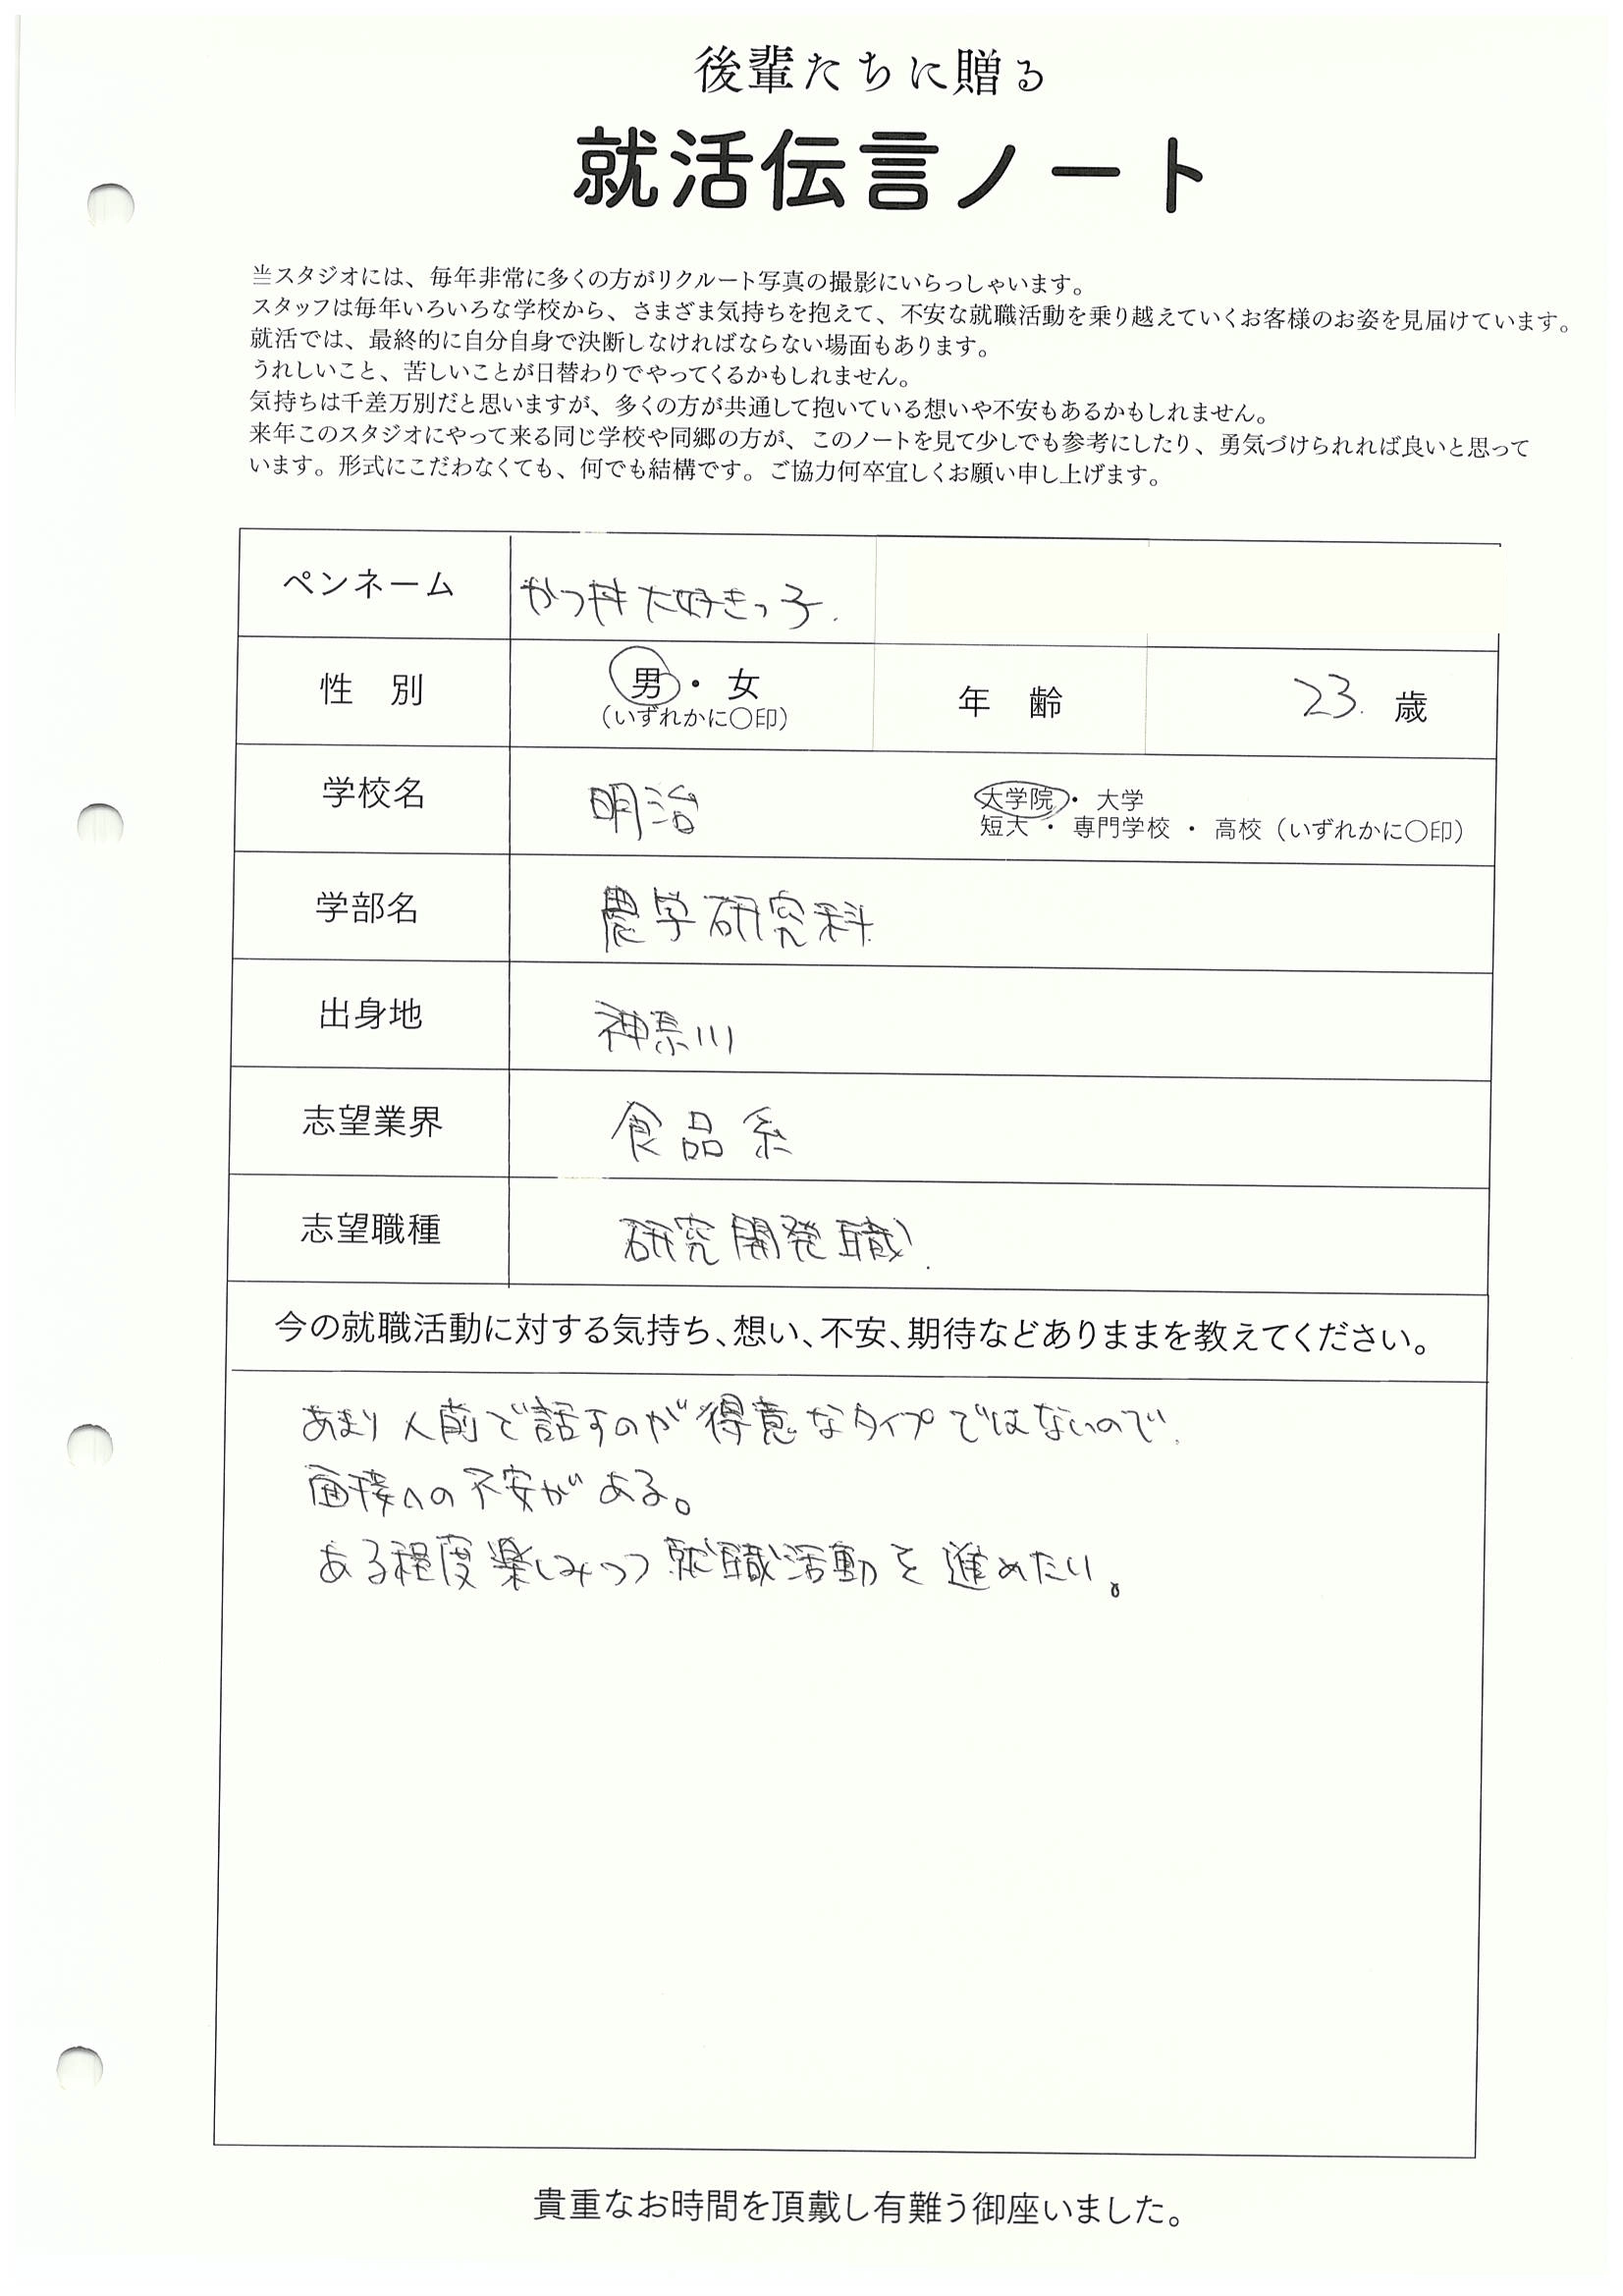 後輩たちに贈る
就活伝言ノート
当スタジオには、毎年非常に多くの方がリクルート写真の撮影にいらっしゃいます。
スタッフは毎年いろいろな学校から、さまざま気持ちを抱えて、不安な就職活動を乗り越えていくお客様のお姿を見届けています。
就活では、最終的に自分自身で決断しなければならない場面もあります。
うれしいこと、苦しいことが日替わりでやってくるかもしれません。
気持ちは千差万別だと思いますが、多くの方が共通して抱いている想いや不安もあるかもしれません。
来年このスタジオにやって来る同じ学校や同郷の方が、このノートを見て少しでも参考にしたり、勇気づけられれば良いと思って
います。形式にこだわなくても、何でも結構です。ご協力何卒宜しくお願い申し上げます。
ペンネーム かつ丼大好きっ子.
性 別 男・女 年 齢 23. 歳
(いずれかに〇印)
学校名 明治 大学院・大学
短大・専門学校・高校(いずれかに〇印)
学部名 農学研究科
出身地 神奈川
志望業界 食品系
志望職種 研究開発職.
今の就職活動に対する気持ち、想い、不安、期待などありままを教えてください。
あまり人前で話すのが得意なタイプではないので、
面接への不安がある。
ある程度楽しみつつ就職活動を進めたい。
貴重なお時間を頂戴し有難う御座いました。